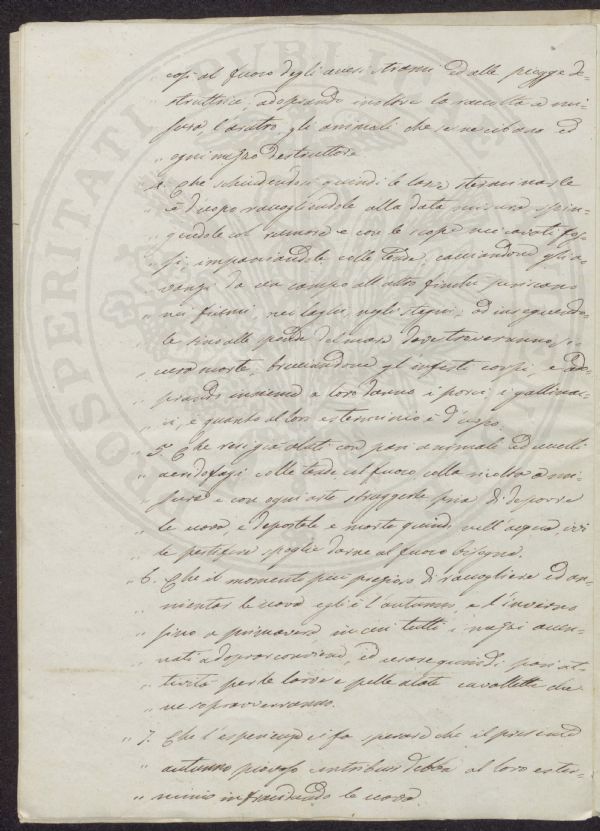 " così al fuoco degli accesi strami ed alle piogge di-
" struttrici, adoprando inoltre la raccolta a mi-
" sura l'aratro, gli animali che se ne cibano ed
" ogni mezzo distruttore
4. Che schiudendosi quindi le larve sterminarle
" è d'uopo raccogliendole alla data misura, spin-
" gendole col rumore e con le scope nei cavati fos-
" si, imprigionandole colle tende, cacciandone gli a-
" vanzi da un campo all'altro finché periscano
" nei fiumi, nei laghi, negli stagni, ed inseguendo-
" le sino alle sponde del mare dove troveranno si-
" cura morte, bruciandone gl'infesti corpi, e ado-
" prando insieme a loro danno i porci, i gallinac-
" ci, e quanto al loro esterminio è d'uopo.
" 5. Che resi già alati con pari animali ed uccelli
" colle tende col fuoco colla ricolta a mi-
" sura e con ogni arte struggerle pria di deporre
" le uova e depostele e morte quindi nell'acqua, ivi
" le pestifere spoglie darne al fuoco bisogna.
" 6. Che il momento più prezioso di raccogliere ed an-
" nientar le uova egli è l'autunno, e l'inverno
" fino a primavera in cui tutti i mezzi accen-
" nati adoprar conviene, ed usare quindi pari at-
" tività per le larve e pelle alate cavallette che
" ne sopravverranno.
" 7. Che l'esperienza ci fa sperare che il presente
" autunno piovoso contribuir debba al loro ester-
" minio infracidando le uova
PROSPERITATI PUBLICAE